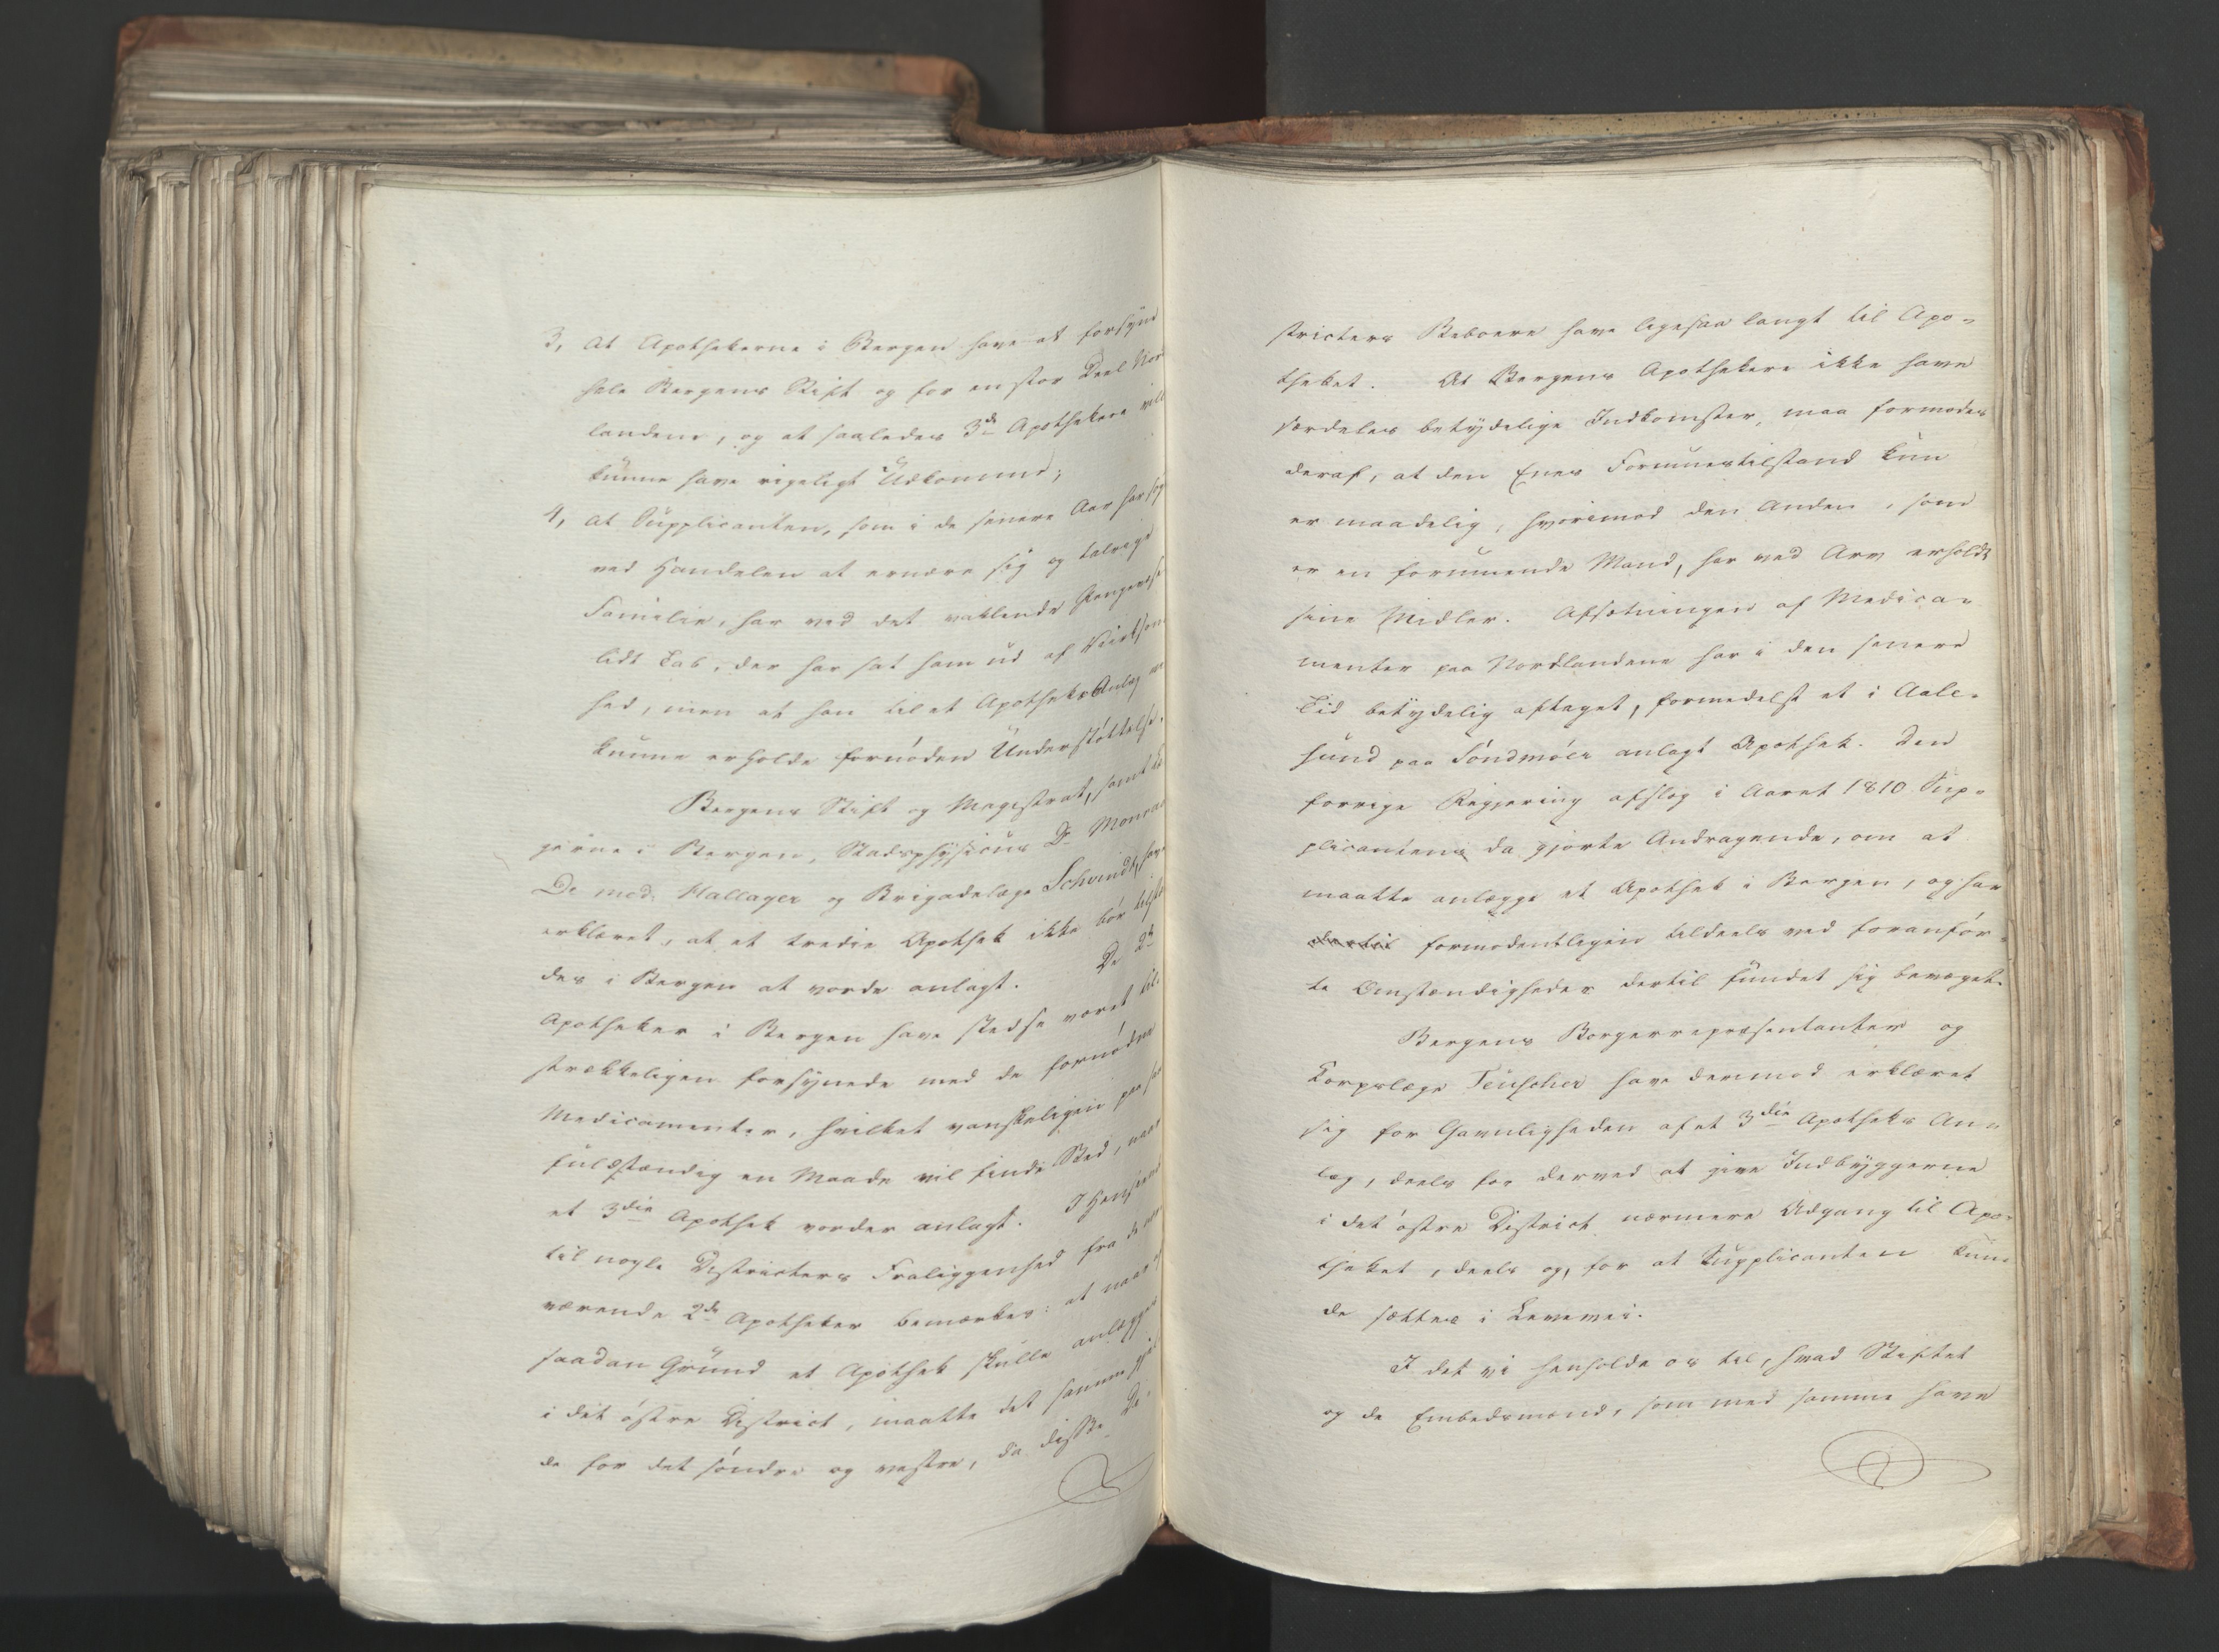 3, at Apothekerne i Bergen have at forsyne
hele Bergens Stift og for en stor Deel Nord
landene, og at saaledes 3de Apothekere vill
kunne have rigeligt Udkomme;
4, at Supplicanten, som i de senere Aar har søgt
ved Handelen at ernære sig og talrige
Familie, har ved det vaklende Pengevæsen
lidt Tab, der har sat ham ud af Virksom
hed, men at han til et Apotheks Anlæg
kunne erholde fornøden Understøttelse.
Bergens Stift og Magistrat, samt Læ
gerne i Bergen, Stadsphysicus Dr Monrad
Dr med: Hallager og Brigadelæge Schvindt, have
erklæret, at et tredie Apothek ikke bør tilste
des i Bergen at vorde anlagt. De 2de
Apotheker i Bergen have stedse været til-
strækkeligen forsynede med de fornødne
Medicamenter, hvilket vanskeligen paa saa
fuldstændig en Maade vil finde Sted, naar
et 3die Apothek vorder anlagt. I Henseende
til nogle Districters Fraliggenhed fra de nu
værende 2de Apotheker bemærkes: at naar af
saadan Grund et Apothek skulle anlægges
i det østre District, maatte det samme gjæl
de for det søndre og vestre, da disse Di
stricters Beboere have ligesaa langt til Apo-
theket. At Bergens Apothekere ikke have
særdeles betydelige Indkomster, maa formodes
deraf, at den Enes Formuestilstand kun
er maadelig, hvorimod den Anden, som
er en formuende Mand, har ved Arv erholdt
sine Midler. Afsætningen af Medica-
menter paa Nordlandene har i den senere
Tid betydelig aftaget, formedelst et i Aale-
sund paa Søndmøer anlagt Apothek. Den
forrige Regjering afslog i Aaret 1810 Sup-
plicantens da gjorte Andragende, om at
maatte anlægge et Apothek i Bergen, og har
dertil formodentligen tildeels ved foranfør-
te Omstændigheder dertil fundet sig bevæget.
Bergens Borgerrepræsentanter og
Corpslæge Teuscher have dermod erklæret
sig for Gavnligheden af et 3die Apotheks An-
læg, deels for derved at give Indbyggerne
i det østre District nærmere Adgang til Apo-
theket, deels og, for at Supplicanten kun-
de sættes i Levevei.
I det vi henholde os til, hvad Stiftet
og de Embedsmænd, som med samme have